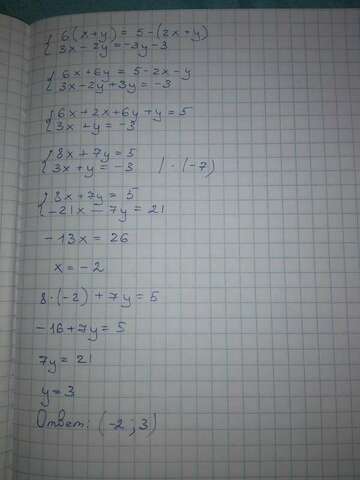 { 6(x+y) = 5-(2x+y)
3x-2y=-3y-3
{ 6x+6y = 5-2x-y
3x-2y+3y=-3
{ 6x+2x+6y+y=5
3x+y=-3
{ 8x+7y=5
3x+y=-3 | ·(-7)
{ 8x+7y=5
-21x-7y=21
-13x=26
x=-2
8·(-2)+7y=5
-16+7y=5
7y=21
y=3
Ответ: (-2;3)